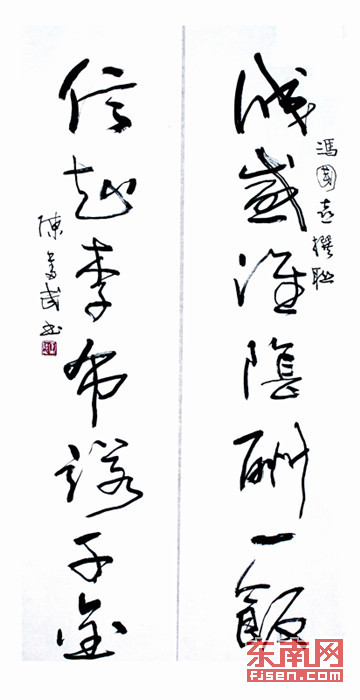 誠感淮陰酬一飯
馮國喜撰聯
信起季布諾千金
陳奮武書
东南网
FJSEN.COM